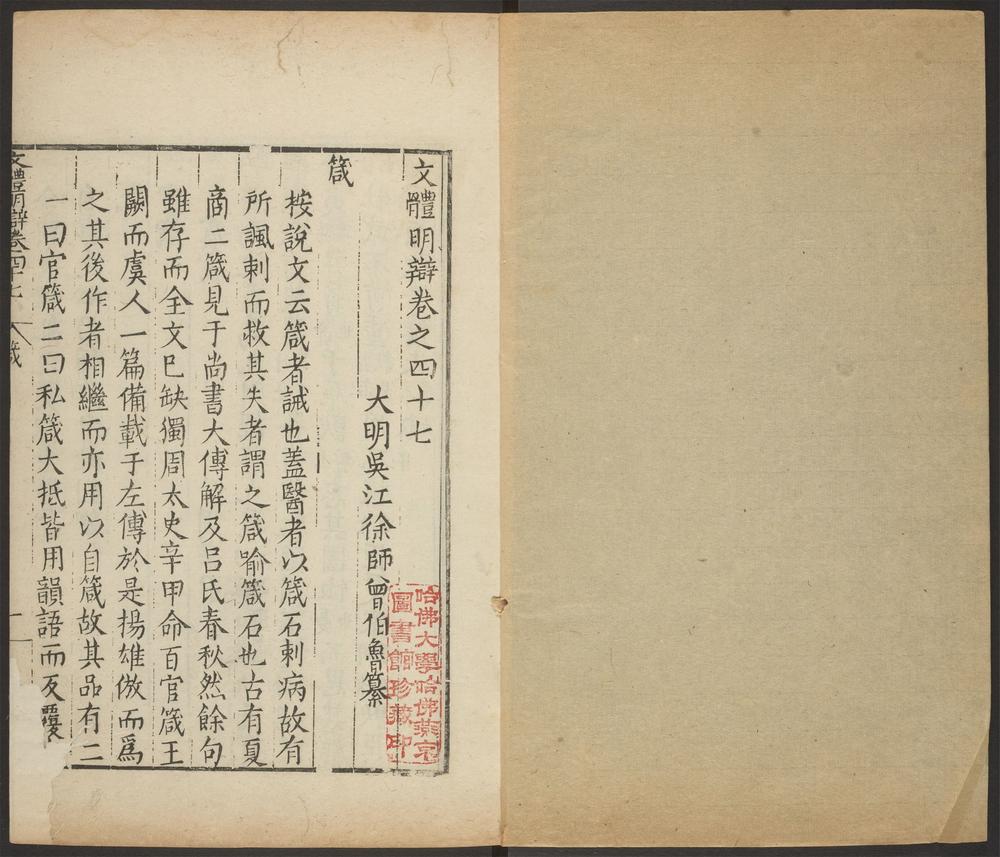 文體明辯卷之四十七
大明吳江徐師曾伯魯纂
箴
按說文云箴者誡也蓋醫者以箴石刺病故有
所諷刺而救其失者謂之箴喻箴石也古有夏
商二箴見于尚書大傳解及呂氏春秋然餘句
雖存而全文巳缺獨周太史辛甲命百官箴王
闕而虞人一篇備載于左傳於是揚雄倣而爲
之其後作者相繼而亦用以自箴故其品有二
一曰官箴二曰私箴大抵皆用韻語而反覆
文體明辯卷四十七
箴
一
哈佛大學哈佛燕京
圖書館珍藏印